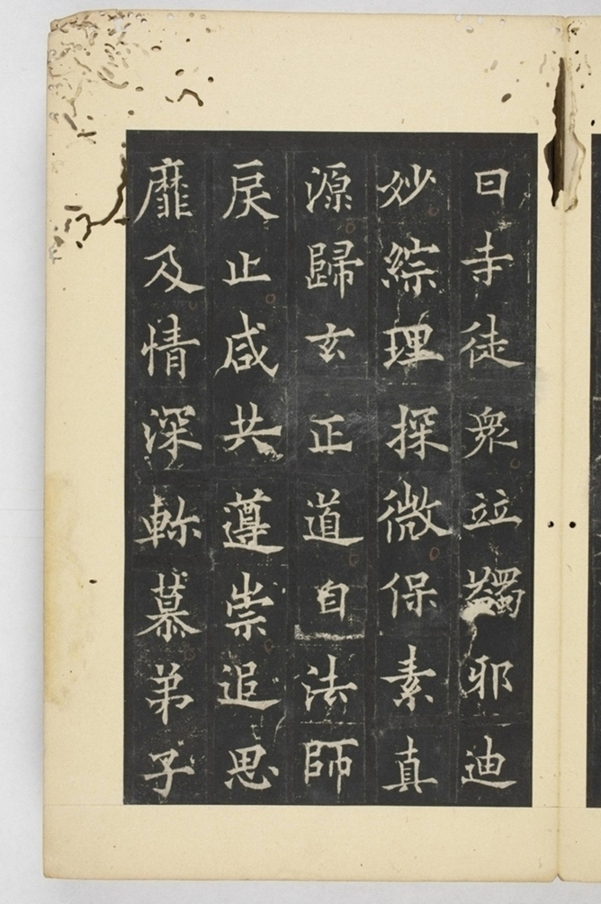 曰寺徒眾竝蠲邪迪
妙綜理探微保素真
源歸玄正道自法師
戾止咸共遵崇追思
靡及情深軫慕弟子